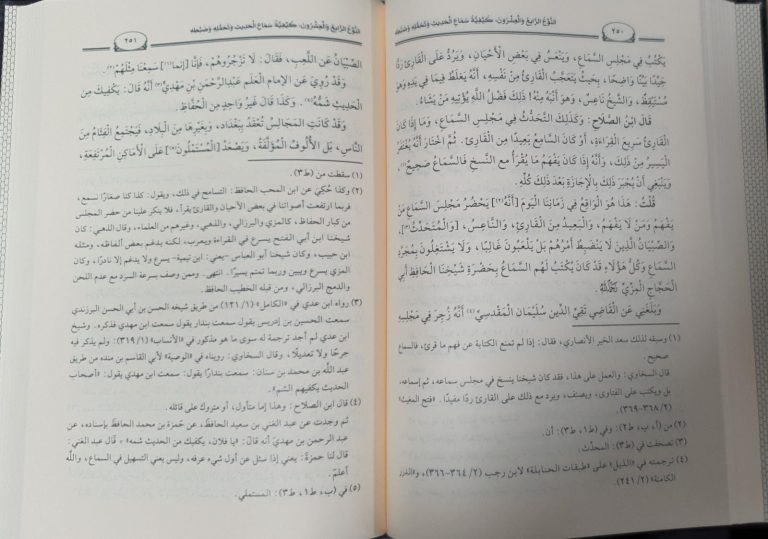 ٢٥٠
النَّوْعُ الرَّابِعُ وَالْعِشْرُونَ: كَيْفِيَّةُ سَمَاعِ الْحَدِيثِ وَتَحَمُّلِهِ وَضَبْطِهِ
يَكْتُبُ فِي مَجْلِسِ السَّمَاعِ، وَيَنْعَسُ فِي بَعْضِ الْأَحْيَانِ، وَيَرُدُّ عَلَى الْقَارِئِ رَدًّا
جَيِّدًا بَيِّنًا وَاضِحًا، بِحَيْثُ يَتَعَجَّبُ الْقَارِئُ مِنْ نَفْسِهِ، أَنَّهُ يَغْلَطُ فِيمَا فِي يَدِهِ وَهُوَ
مُسْتَيْقِظٌ، وَالشَّيْخُ نَاعِسٌ، وَهُوَ أَنْبَهُ مِنْهُ! ذَلِكَ فَضْلُ اللَّهِ يُؤْتِيهِ مَنْ يَشَاءُ.
قَالَ ابْنُ الصَّلَاحِ: وَكَذَلِكَ التَّحَدُّثُ فِي مَجْلِسِ السَّمَاعِ، وَمَا إِذَا كَانَ
الْقَارِئُ سَرِيعَ الْقِرَاءَةِ، أَوْ كَانَ السَّامِعُ بَعِيدًا مِنَ الْقَارِئِ. ثُمَّ اخْتَارَ أَنَّهُ يُغْتَفَرُ
الْيَسِيرُ مِنْ ذَلِكَ، وَأَنَّهُ إِذَا كَانَ يَفْهَمُ مَا يُقْرَأُ مَعَ النَّسْخِ فَالسَّمَاعُ صَحِيحٌ(١).
وَيَنْبَغِي أَنْ يُجْبَرَ ذَلِكَ بِالْإِجَازَةِ بَعْدَ ذَلِكَ كُلِّهِ.
قُلْتُ: هَذَا هُوَ الْوَاقِعُ فِي زَمَانِنَا الْيَوْمَ [أَنَّهُ](٢) يَحْضُرُ مَجْلِسَ السَّمَاعِ مَنْ
يَفْهَمُ وَمَنْ لَا يَفْهَمُ، وَالْبَعِيدُ مِنَ الْقَارِئِ، وَالنَّاعِسُ، [وَالْمُتَحَدِّثُ](٣)،
وَالصِّبْيَانُ الَّذِينَ لَا يَنْضَبِطُ أَمْرُهُمْ بَلْ يَلْعَبُونَ غَالِبًا، وَلَا يَشْتَغِلُونَ بِمُجَرَّدِ
السَّمَاعِ وَكُلُّ هَؤُلَاءِ قَدْ كَانَ يُكْتَبُ لَهُمُ السَّمَاعُ بِحَضْرَةِ شَيْخِنَا الْحَافِظِ أَبِي
الْحَجَّاجِ الْمِزِّيِّ رَحِمَهُ اللَّهُ
وَبَلَغَنِي عَنِ الْقَاضِي تَقِيِّ الدِّينِ سُلَيْمَانَ الْمَقْدِسِيِّ(٤) أَنَّهُ زُجِرَ فِي مَجْلِسِهِ
(١) وسبقه لذلك سعد الخير الأنصاري، فقال: إذا لم تمنع الكتابة عن فهم ما قرئ، فالسماع
صحيح.
قال السخاوي: والعمل على هذا، فقد كان شيخنا ينسخ في مجلس سماعه، ثم إسماعه،
بل ويكتب على الفتاوى، ويصنف، ويرد مع ذلك على القارئ ردًا مفيدًا. «فتح المغيث»
(٢/ ٣٦٨-٣٦٩).
(٢) من (أ، ب، ط٢)؛ وفي (ط١، ط٣): أن.
(٣) تصحفت في (ط٣): المحدِّث.
(٤) ترجمته في «الذيل» على «طبقات الحنابلة» لابن رجب (٢/ ٣٦٤-٣٦٦)، و«الدرر
الكامنة» (٢/ ٢٤١).
النَّوْعُ الرَّابِعُ وَالْعِشْرُونَ: كَيْفِيَّةُ سَمَاعِ الْحَدِيثِ وَتَحَمُّلِهِ وَضَبْطِهِ
٢٥١
الصِّبْيَانُ عَنِ اللَّعِبِ، فَقَالَ: لَا تَزْجُرُوهُمْ، فَإِنَّا [إنما](١) سَمِعْنَا مِثْلَهُمْ(٢).
وَقَدْ رُوِيَ عَنِ الإمام الْعَلَمِ عَبْدِالرَّحْمَنِ بْنِ مَهْدِيٍّ(٣) أَنَّهُ قَالَ: يَكْفِيكَ مِنَ
الْحَدِيثِ شَمُّهُ(٤). وَكَذَا قَالَ غَيْرُ وَاحِدٍ مِنَ الْحُفَّاظِ.
وَقَدْ كَانَتِ الْمَجَالِسُ تُعْقَدُ بِبَغْدَادَ، وَبِغَيْرِهَا مِنَ الْبِلَادِ، فَيَجْتَمِعُ الْفِئَامُ مِنَ
النَّاسِ، بَلِ الْأُلُوفُ الْمُؤَلَّفَةُ، وَيَصْعَدُ [الْمُسْتَمْلُونَ](٥) عَلَى الْأَمَاكِنِ الْمُرْتَفِعَةِ،
(١) سقطت من (ط٣).
(٢) وكذا حُكِيَ عن ابن المحب الحافظ: التسامح في ذلك، ويقول: كذا كنا صغارًا نسمع،
فربما ارتفعت أصواتنا في بعض الأحيان والقارئ يقرأ، فلا ينكر علينا من حضر المجلس
من كبار الحفاظ، كالمزي والبرزالي، والذهبي، وغيرهم من العلماء، وقال الذهبي: كان
شيخنا ابن أبي الفتح يسرع في القراءة ويعرب، لكنه يدغم بعض ألفاظه، ومثله
ابن حبيب، وكان شيخنا أبو العباس -يعني: ابن تيمية- يسرع ولا يدغم إلا نادرًا، وكان
المزي يسرع ويبين وربما تمتم يسيرًا.. انتهى. وممن وصف بسرعة السرد مع عدم اللحن
والدمج البرزالي، ومن قبله الخطيب الحافظ.
(٣) رواه ابن عدي في «الكامل» (١/ ١٢١) من طريق شيخه الحسن بن أبي الحسن البرزندي
سمعت الحسين بن إدريس يقول سمعت بندار يقول سمعت ابن مهدي فذكره. وشيخ
ابن عدي لم أجد ترجمة له سوى ما هو مذكور في «الأنساب» (١/ ٣١٩)؛ ولم يذكر فيه
جرحًا ولا تعديلًا، وقال السخاوي: رويناه في «الوصية» لأبي القاسم بن منده من طريق
عبد اللَّه بن محمد بن سنان: سمعت بندارًا يقول: سمعت ابن مهدي يقول: «أصحاب
الحديث يكفيهم الشم».
(٤) قال ابن الصلاح: وهذا إما متأول، أو متروك على قائله.
ثم وجدت عن عبد الغني بن سعيد الحافظ، عن حَمزة بن محمد الحافظ بإسناده، عن
عبد الرحمن بن مهدي أنه قال: «يا فلان، يكفيك من الحديث شمه» قال عبد الغني:
قال لنا حمزةُ: يعني إذا سئل عن أول شيء عرفه، وليس يعني التسهيل في السماع، واللَّه
أعلم.
(٥) في (ب، ط١، ط٣): المستملي.